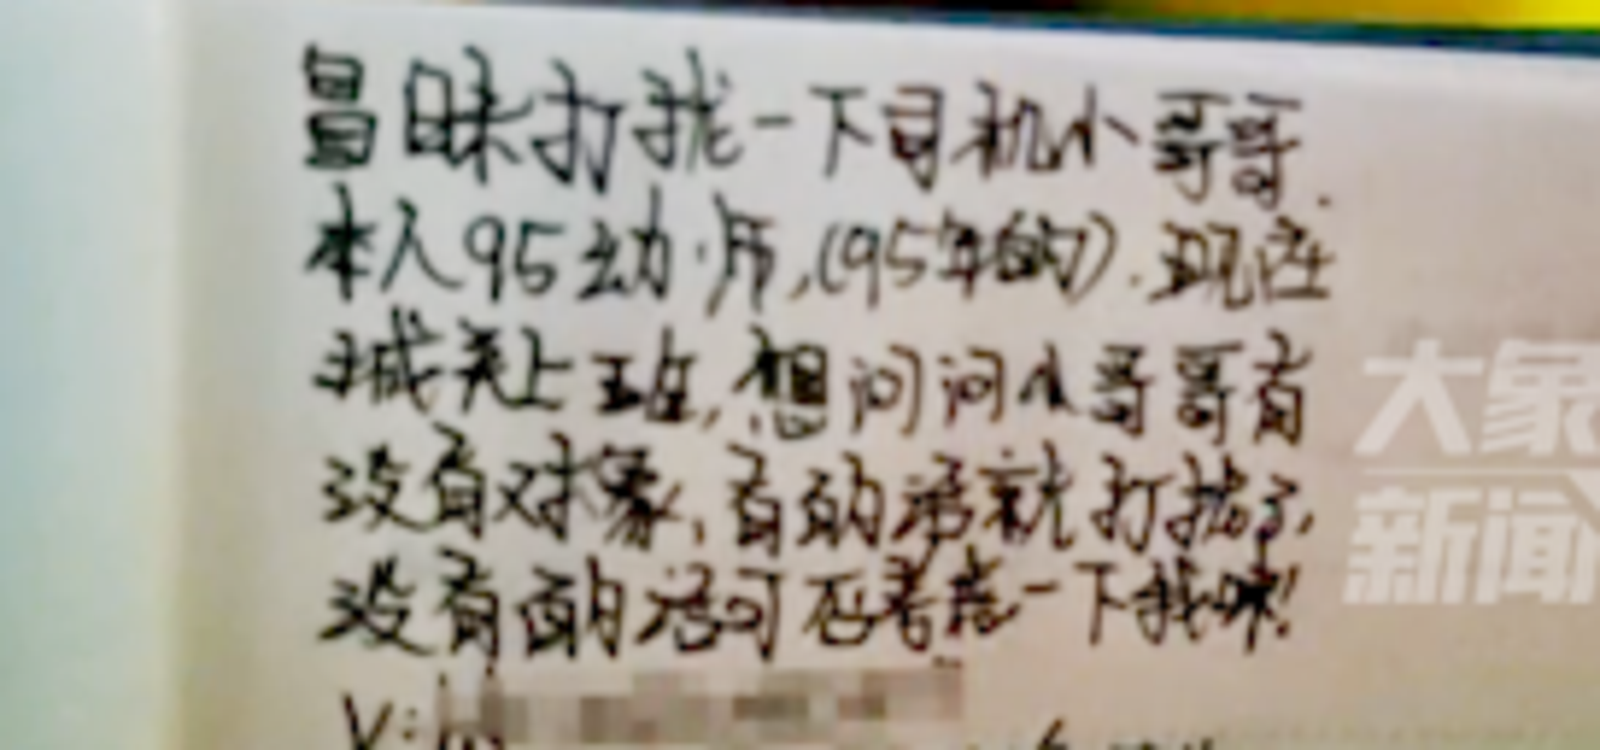 冒昧打扰一下司机小哥哥.
本人95幼师,(95年的).现在
城关上班,想问问小哥哥有
没有对象,有的话就打扰了,
没有的话可否考虑一下我呀!
V:
大象
新闻